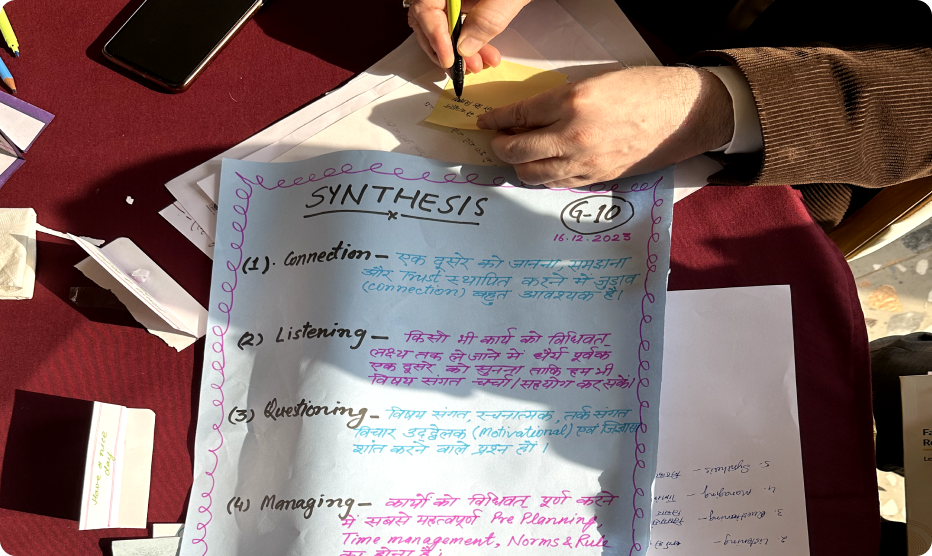 SYNTHESIS
G-10
16.12.2023
(1). Connection – एक दूसरे को जानना, समझना
और Trust स्थापित करने में जुड़ाव
(connection) बहुत आवश्यक है।
(2) Listening – किसी भी कार्य को विधिवत्
लक्ष्य तक ले जाने में धैर्य पूर्वक
एक दूसरे को सुनना ताकि हम भी
विषय संगत चर्चा/सहयोग कर सकें।
(3) Questioning – विषय संगत, रचनात्मक, तर्क संगत
विचार उद्द्वेलक (Motivational) एवं जिज्ञासा
शांत करने वाले प्रश्न हों।
(4) Managing – कार्यों को विधिवत् पूर्ण करने
में सबसे महत्वपूर्ण Pre Planning,
Time management, Norms & Rule
का होना है;
Have a nice
day
5. Synthesis –
4. Managing –
3. Questioning –
2. Listening –